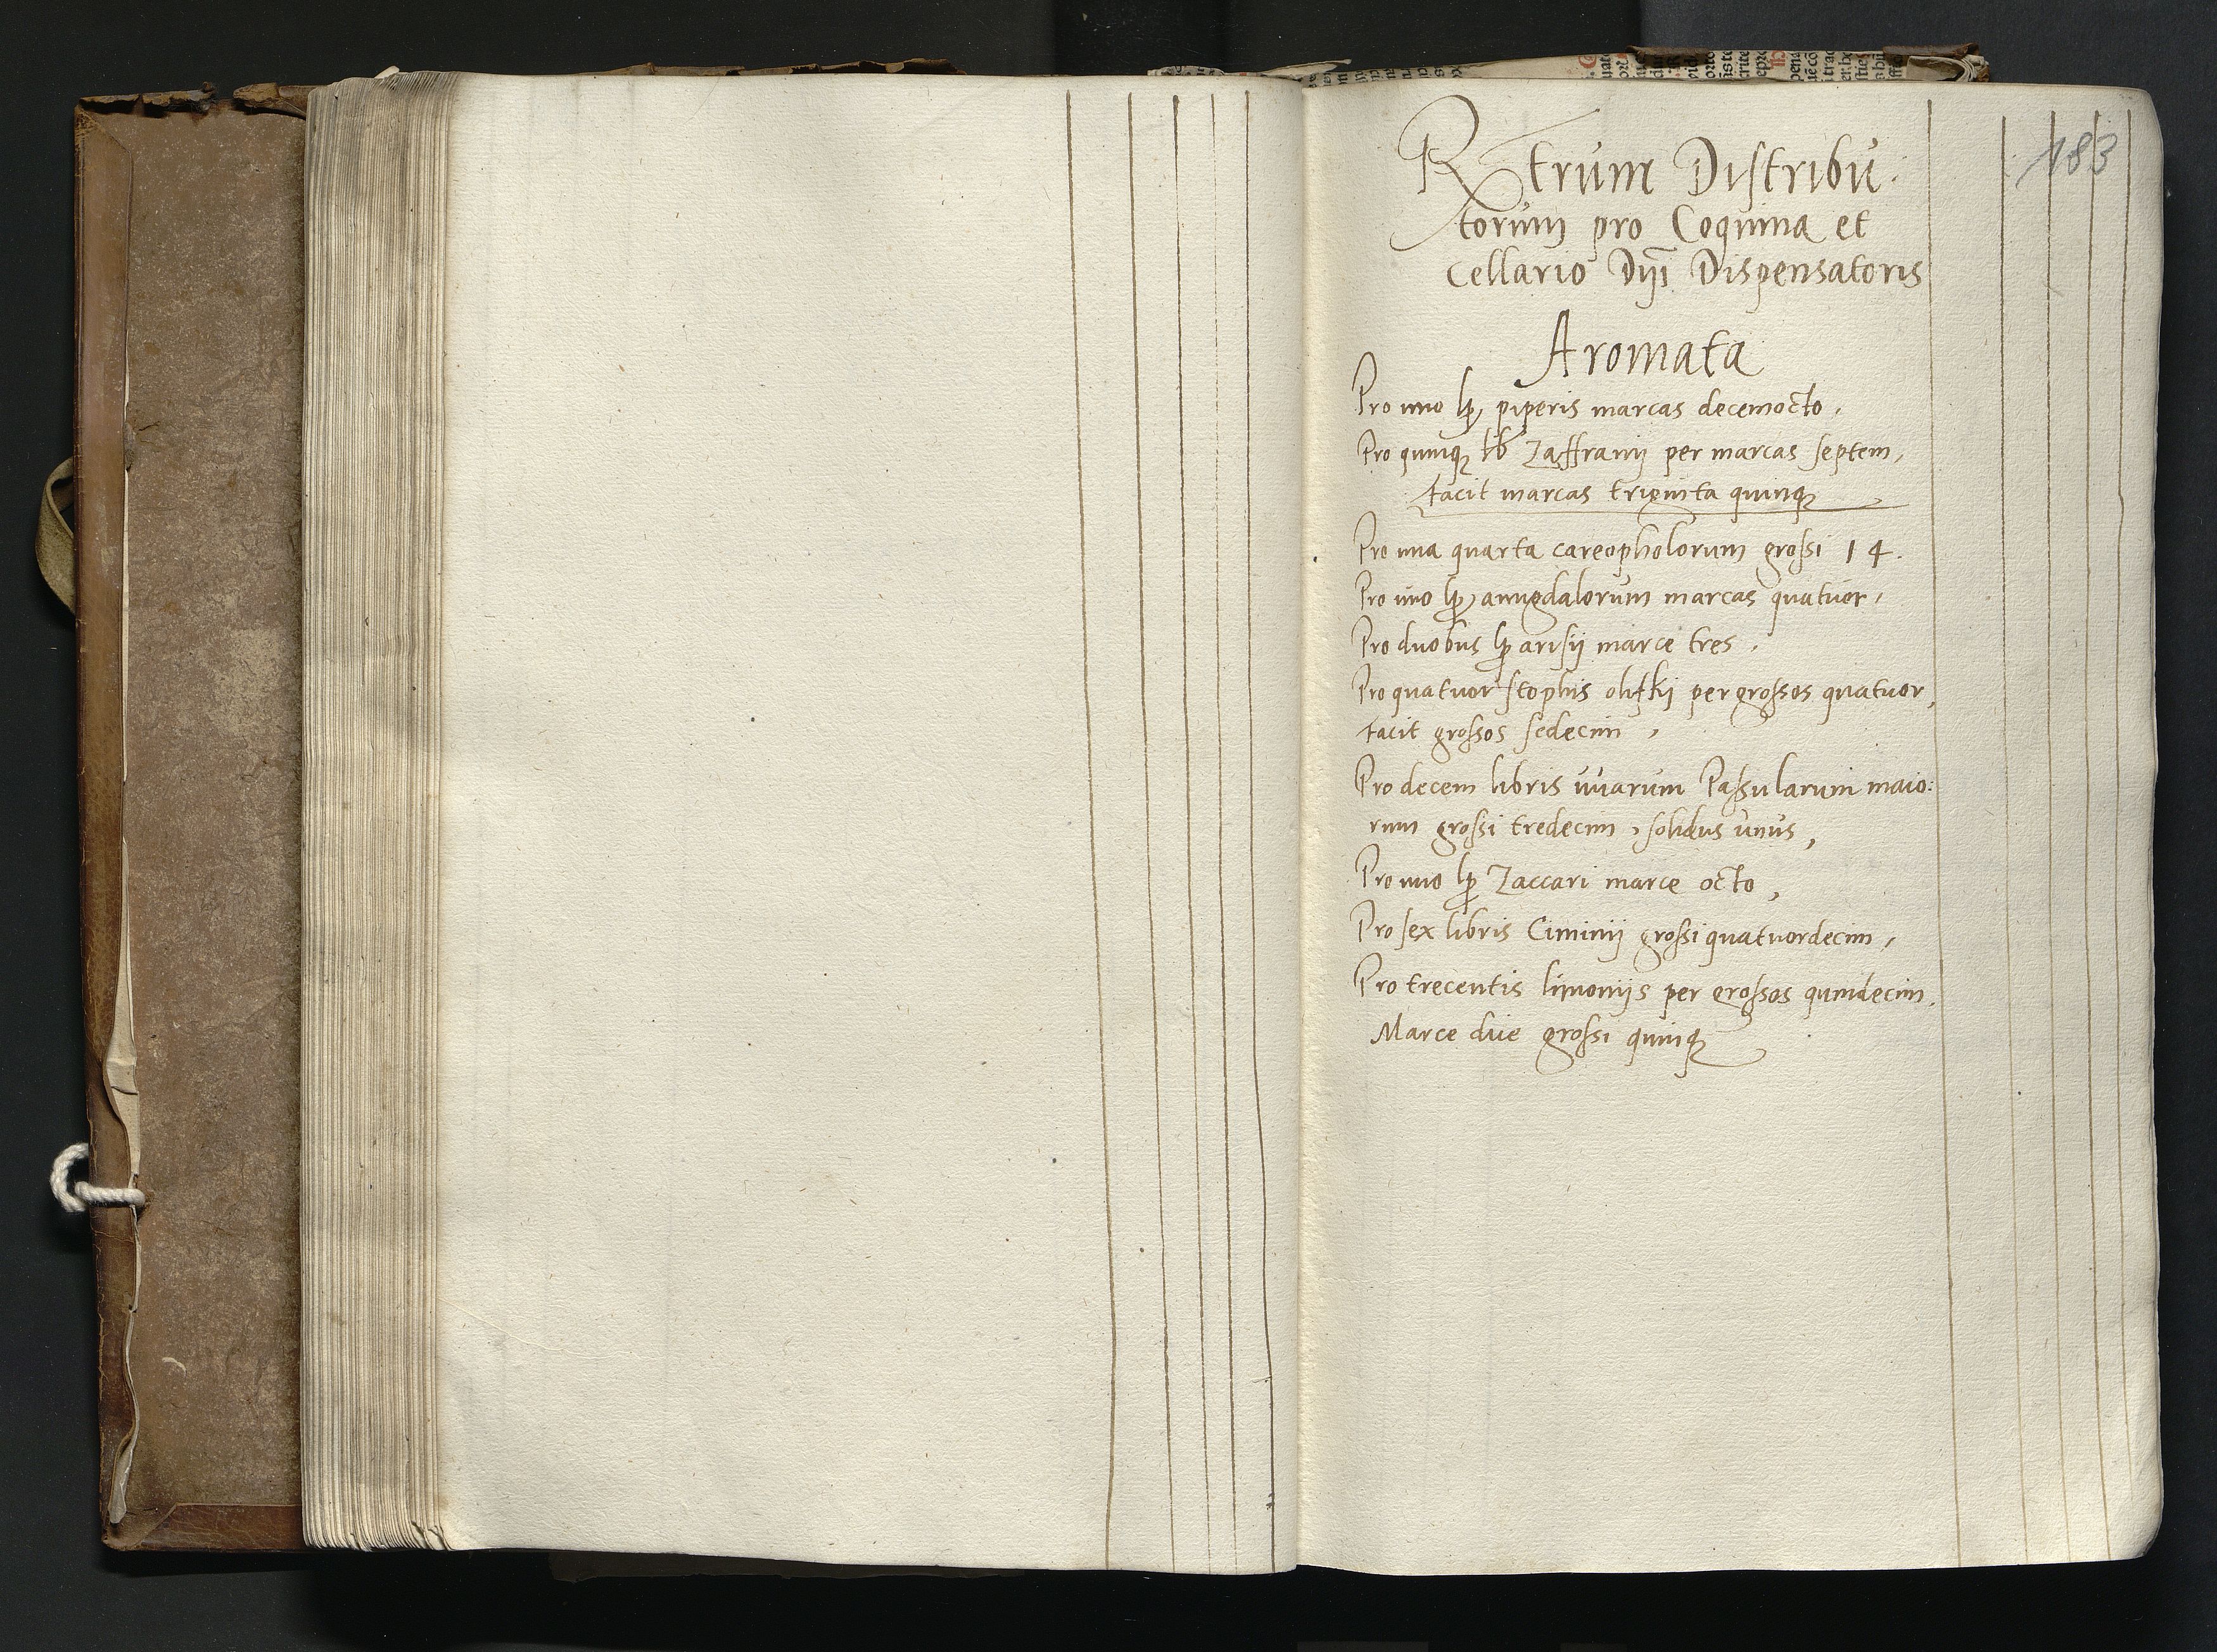 183
Retrum Distribu
torum pro Coquina et
Cellario Dni Dispensatoris
Aromata
Pro uno lp piperis marcas decemocto,
Pro quinq lb Zaffranij per marcas septem,
facit marcas triginta quinq
Pro una quarta careopholorum grossi 14.
Pro uno lp amigdalorum marcas quatuor,
Pro duobus lp arisij marce tres,
Pro quatuor stophis olifkij per grossos quatuor,
facit grossos sedecim,
Pro decem libris uuarum Passularum maio:
rum grossi tredecim, solidus unus,
Pro uno lp Zaccari marce octo,
Pro sex libris Ciminij grossi quatuordecim,
Pro trecentis limonijs per grossos quindecim,
Marce due grossi quinq